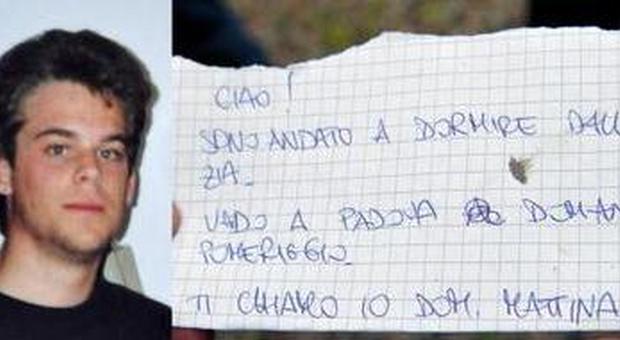 CIAO!
SONO ANDATO A DORMIRE DALL
ZIA.
VADO A PADOVA DOMAN
POMERIGGIO.
TI CHIAMO IO DOM. MATTINA